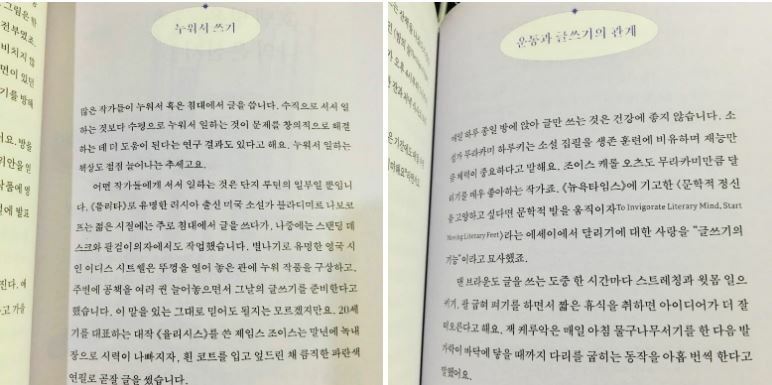 그림은 탁
전부였죠.
비치지 않
면이 있던
기를 방해
요. 방을
위안을 인
작품에 명
에 발표
진다. 애
고 가을
누워서 쓰기
많은 작가들이 누워서 혹은 침대에서 글을 씁니다. 수직으로 서서 일
하는 것보다 수평으로 누워서 일하는 것이 문제를 창의적으로 해결
하는 데 더 도움이 된다는 연구 결과도 있다고 해요. 누워서 일하는
책상도 점점 늘어나는 추세고요.
어떤 작가들에게 서서 일하는 것은 단지 루틴의 일부일 뿐입니
다. 《롤리타》로 유명한 러시아 출신 미국 소설가 블라디미르 나보코
프는 젊은 시절에는 주로 침대에서 글을 쓰다가, 나중에는 스탠딩 데
스크와 팔걸이의자에서도 작업했습니다. 별나기로 유명한 영국 시
인 이디스 시트웰은 뚜껑을 열어 놓은 관에 누워 작품을 구상하고,
주변에 공책을 여러 권 늘어놓으면서 그날의 글쓰기를 준비한다고
했습니다. 이 말을 있는 그대로 믿어도 될지는 모르겠지만요. 20세
기를 대표하는 대작 《율리시스》를 쓴 제임스 조이스는 말년에 녹내
장으로 시력이 나빠지자, 흰 코트를 입고 엎드린 채 큼직한 파란색
연필로 곧잘 글을 썼습니다.
운동과 글쓰기의 관계
매일 하루 종일 방에 앉아 글만 쓰는 것은 건강에 좋지 않습니다. 소
설가 무라카미 하루키는 소설 집필을 생존 훈련에 비유하며 재능만
큼 체력이 중요하다고 말해요. 조이스 캐롤 오츠도 무라카미만큼 달
리기를 매우 좋아하는 작가죠. 《뉴욕타임스》에 기고한 〈문학적 정신
을 고양하고 싶다면 문학적 발을 움직이자To Invigorate Literary Mind, Start
Moving Literary Feet〉라는 에세이에서 달리기에 대한 사랑을 "글쓰기의
기능"이라고 묘사했죠.
댄 브라운도 글을 쓰는 도중 한 시간마다 스트레칭과 윗몸 일으
키기, 팔 굽혀 펴기를 하면서 짧은 휴식을 취하면 아이디어가 더 잘
떠오른다고 해요. 잭 케루악은 매일 아침 물구나무서기를 한 다음 발
가락이 바닥에 닿을 때까지 다리를 굽히는 동작을 아홉 번씩 한다고
말했어요.